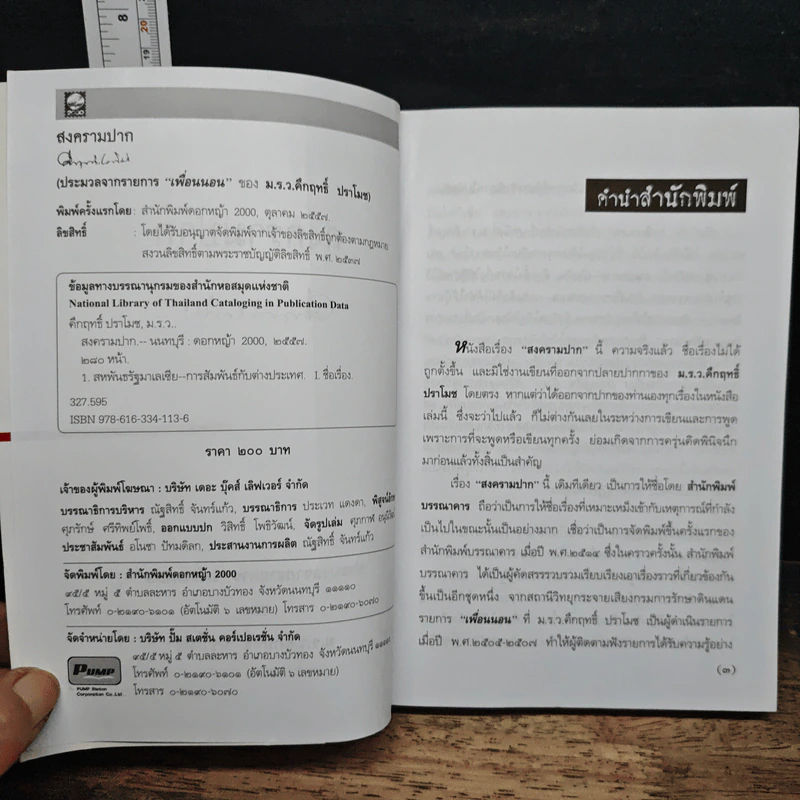 8
19
20
สงครามปาก
(ประมวลจากรายการ "เพื่อนนอน" ของ ม.ร.ว.คึกฤทธิ์ ปราโมช)
พิมพ์ครั้งแรกโดย : สำนักพิมพ์ดอกหญ้า 2000, ตุลาคม ๒๕๕๗.
ลิขสิทธิ์ : โดยได้รับอนุญาตจัดพิมพ์จากเจ้าของลิขสิทธิ์ถูกต้องตามกฎหมาย
สงวนลิขสิทธิ์ตามพระราชบัญญัติลิขสิทธิ์ พ.ศ. ๒๕๓๗
ข้อมูลทางบรรณานุกรมของสำนักหอสมุดแห่งชาติ
National Library of Thailand Cataloging in Publication Data
คึกฤทธิ์ ปราโมช, ม.ร.ว..
สงครามปาก.-- นนทบุรี : ดอกหญ้า 2000, ๒๕๕๗.
๒๘๐ หน้า.
1. สหพันธรัฐมาเลเซีย--การสัมพันธ์กับต่างประเทศ. I. ชื่อเรื่อง.
327.595
ISBN 978-616-334-113-6
ราคา ๒๐๐ บาท
เจ้าของผู้พิมพ์โฆษณา : บริษัท เดอะ บุ๊คส์ เลิฟเวอร์ จำกัด
บรรณาธิการบริหาร ณัฐสิทธิ์ จันทร์แก้ว, บรรณาธิการ ประเวท แดงดา,
ศุภรักษ์ ศรีทิพย์โพธิ์, ออกแบบปก วิสิทธิ์ โพธิวัฒน์, จัดรูปเล่ม ศุภกาฬ
ประชาสัมพันธ์ อโนชา ปัทมดิลก, ประสานงานการผลิต ณัฐสิทธิ์ จันทร์แก้ว
จัดพิมพ์โดย : สำนักพิมพ์ดอกหญ้า 2000
๙๕/๕ หมู่ ๕ ตำบลละหาร อำเภอบางบัวทอง จังหวัดนนทบุรี ๑๑๑๑๐
โทรศัพท์ ๐-๒๑๙๐-๖๑๐๑ (อัตโนมัติ ๖ เลขหมาย) โทรสาร ๐-๒๑๙๐-๖๐๗๐
จัดจำหน่ายโดย : บริษัท ปั๊ม สเตชั่น คอร์เปอเรชั่น จำกัด
๙๕/๕ หมู่ ๕ ตำบลละหาร อำเภอบางบัวทอง จังหวัดนนทบุรี ๑๑๑๑๐
โทรศัพท์ ๐-๒๑๙๐-๖๑๐๑ (อัตโนมัติ ๖ เลขหมาย)
โทรสาร ๐-๒๑๙๐-๖๐๗๐
PUMP
PUMP Station
Corporation Co.,Ltd
คำนำสำนักพิมพ์
หนังสือเรื่อง "สงครามปาก" นี้ ความจริงแล้ว ชื่อเรื่องไม่ได้
ถูกตั้งขึ้น และมิใช่งานเขียนที่ออกจากปลายปากกาของ ม.ร.ว.คึกฤทธิ์
ปราโมช โดยตรง หากแต่ว่าได้ออกจากปากของท่านเองทุกเรื่องในหนังสือ
เล่มนี้ ซึ่งจะว่าไปแล้ว ก็ไม่ต่างกันเลยในระหว่างการเขียนและการพูด
เพราะการที่จะพูดหรือเขียนทุกครั้ง ย่อมเกิดจากการครุ่นคิดพินิจนึก
มาก่อนแล้วทั้งสิ้นเป็นสำคัญ
เรื่อง "สงครามปาก" นี้ เดิมทีเดียว เป็นการให้ชื่อโดย สำนักพิมพ์
บรรณาคาร ถือว่าเป็นการให้ชื่อเรื่องที่เหมาะเหม็งเข้ากับเหตุการณ์ที่กำลัง
เป็นไปในขณะนั้นเป็นอย่างมาก เชื่อว่าเป็นการจัดพิมพ์ขึ้นครั้งแรกของ
สำนักพิมพ์บรรณาคาร เมื่อปี พ.ศ.๒๕๑๔ ซึ่งในคราวครั้งนั้น สำนักพิมพ์
บรรณาคาร ได้เป็นผู้คัดสรรรวบรวมเรียบเรียงเอาเรื่องราวที่เกี่ยวข้องกัน
ขึ้นเป็นอีกชุดหนึ่ง จากสถานีวิทยุกระจายเสียงกรมการรักษาดินแดน
รายการ "เพื่อนนอน" ที่ ม.ร.ว.คึกฤทธิ์ ปราโมช เป็นผู้ดำเนินรายการ
เมื่อปี พ.ศ.๒๕๐๕-๒๕๐๗ ทำให้ผู้ติดตามฟังรายการได้รับความรู้อย่าง
(๓)